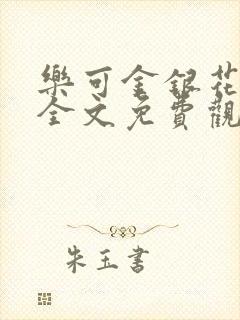 樂可金銀花
全文免費觀
朱玉書